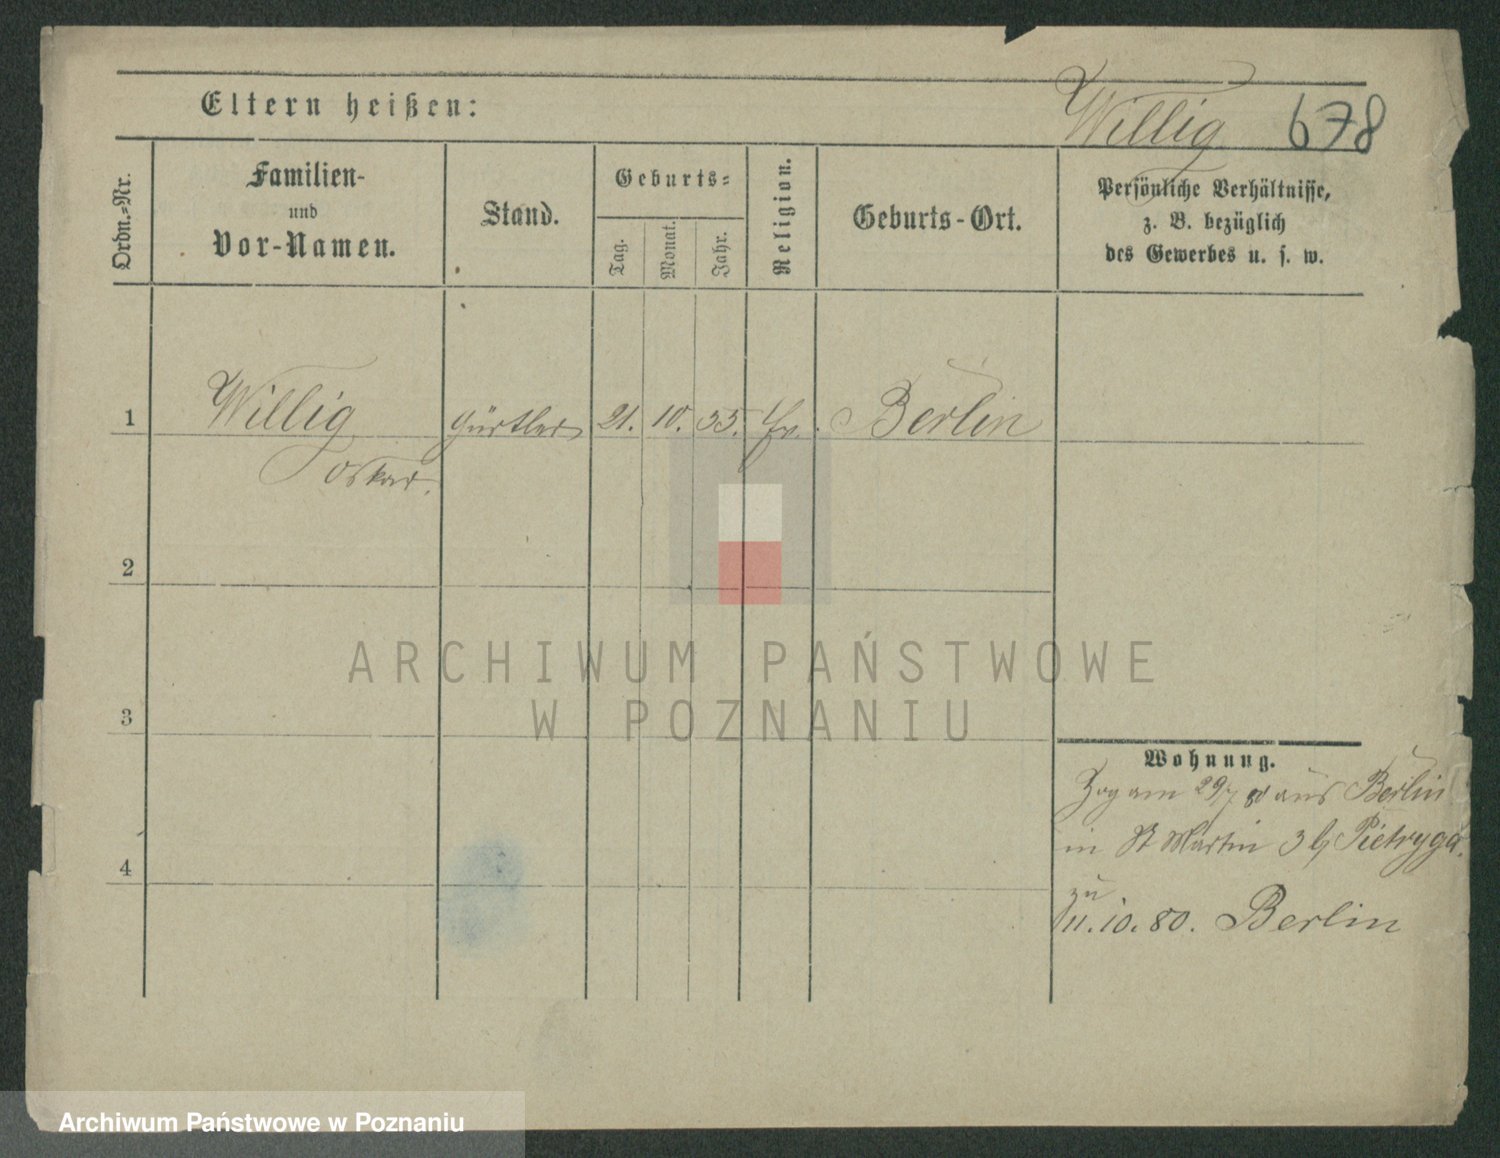 Eltern heißen:
Willig 678
Ordn.=Nr.
Familien-
und
Vor-Namen.
Stand.
Geburts=
Tag.
Monat.
Jahr.
Religion.
Geburts-Ort.
Persönliche Verhältnisse,
z. B. bezüglich
des Gewerbes u. s. w.
1
Willig
Oskar.
Gürtler
21. 10. 35.
Berlin
2
3
4
Wohnung.
Zog am 29/7 80 aus Berlin
in St Martin 3 b/ Pietryga.
zu
11.10.80. Berlin
ARCHIWUM PAŃSTWOWE
W POZNANIU
Archiwum Państwowe w Poznaniu